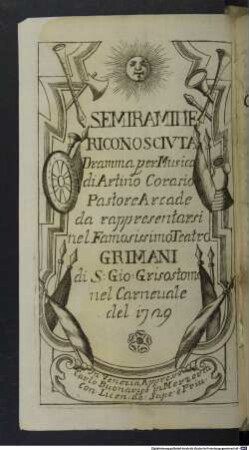 SEMIRAMIDE
RICONOSCIUTA
Dramma per Musica
di Artino Corasio
Pastore Arcade
da rappresentarsi
nel Famosissimo Teatro
GRIMANI
di S. Gio: Grisostomo
nel Carneuale
del 1729
In Venezia Appresso
Carlo Buonarigo in Merzeria
Con Licen. de Super. e Priu.